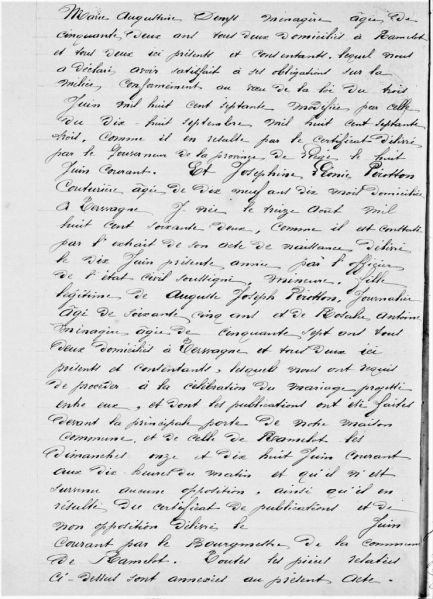 Marie Augustine Denys ménagère âgée de
cinquante deux ans tous deux domiciliés à Ramelot
et tous deux ici présents et consentants, lequel nous
a déclaré avoir satisfait à ses obligations sur la
milice conformément au vœu de la loi du trois
Juin mil huit cent septante modifiée par celle
du dix-huit septembre mil huit cent septante
trois, comme il en résulte par le certificat délivré
par le Gouverneur de la province de Liège le huit
Juin Courant. Et Joséphine Léonie Pirotton
Couturière âgée de dix neuf ans dix mois domiciliée
à Terwagne y née le treize Août mil
huit cent soixante deux, comme il est constaté
par l'extrait de son acte de naissance délivré
le dix Juin présente année par l'officier
de l'état civil soussigné mineure, fille
légitime de Auguste Joseph Pirotton, Journalier
âgé de soixante cinq ans et de Rosalie Antoine
ménagère âgée de cinquante sept ans tous
deux domiciliés à Terwagne et tous deux ici
présents et consentants, lesquels nous ont requis
de procéder à la célébration du mariage projetté
entre eux, et dont les publications ont été faites
devant la principale porte de notre maison
Commune, et de celle de Ramelot les
dimanches onze et dix huit Juin courant
aux dix heures du matin et qu'il n'est
survenu aucune opposition, ainsi qu'il en
résulte du certificat de publications et de
non opposition délivré le Juin
Courant par le Bourgmestre de la commune
de Ramelot. Toutes les pièces relatées
ci-dessus sont annexées au présent acte.